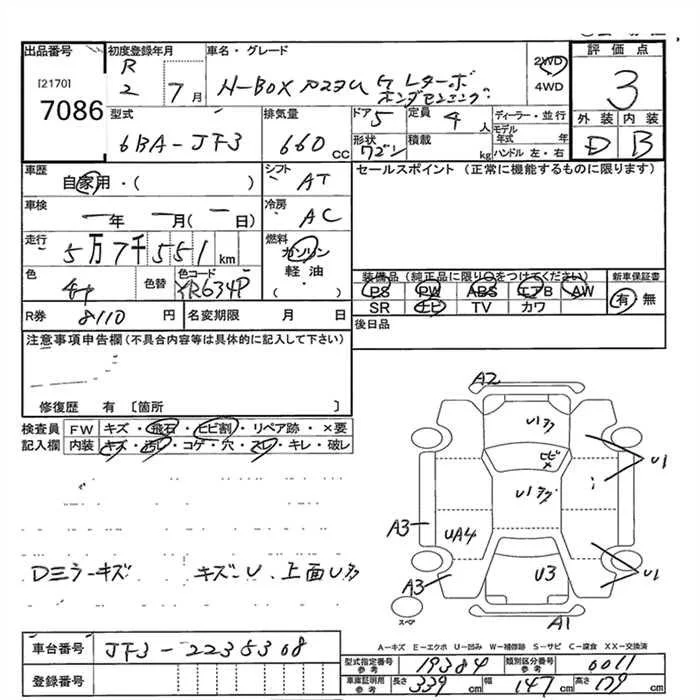 出品番号
[2170]
7086
初度登録年月
R
2
7月
車名・グレード
N-BOX カスタム G Lターボ
ホンダセンシング
2WD
4WD
評価点
3
外装 内装
D B
型式
6BA-JF3
排気量
660 CC
ドア 5
定員 4 人
形状 ワゴン
積載 kg
ディーラー・並行
モデル年式 年
ハンドル 左・右
車歴
自家用・( )
シフト
AT
セールスポイント (正常に機能するものに限ります)
車検
ー年 ー月(ー日)
冷房
AC
走行
5万7千551km
燃料
ガソリン
軽油
( ・ )
色
色替
色コード
YR634P
装備品(純正品に限り○をつけてください)
PS PW ABS エアB AW
SR ナビ TV カワ
新車保証書
有・無
R券 8110 円
名変期限 月 日
後日品
注意事項申告欄(不具合内容等は具体的に記入して下さい)
修復歴 有 [箇所 ]
検査員
記入欄
FW キズ・飛石・ヒビ割・リペア跡・×要
内装 キズ・汚レ・コゲ・穴・スレ・キレ・破レ
Dミラーキズ キズ・U. 上面U多
A2
U1多
ヒビ
×
U1
U1多
A3
UA4
A3
U3
U1
A1
スペア
A-キズ E-エクボ U-凹み W-補修跡 S-サビ C-腐食 XX-交換済
車台番号 JF3-2235308
登録番号
型式指定番号
参考
19384
類別区分番号
参考
0011
車庫証明用
参考
長さ 339 cm
幅 147 cm
高さ 179 cm